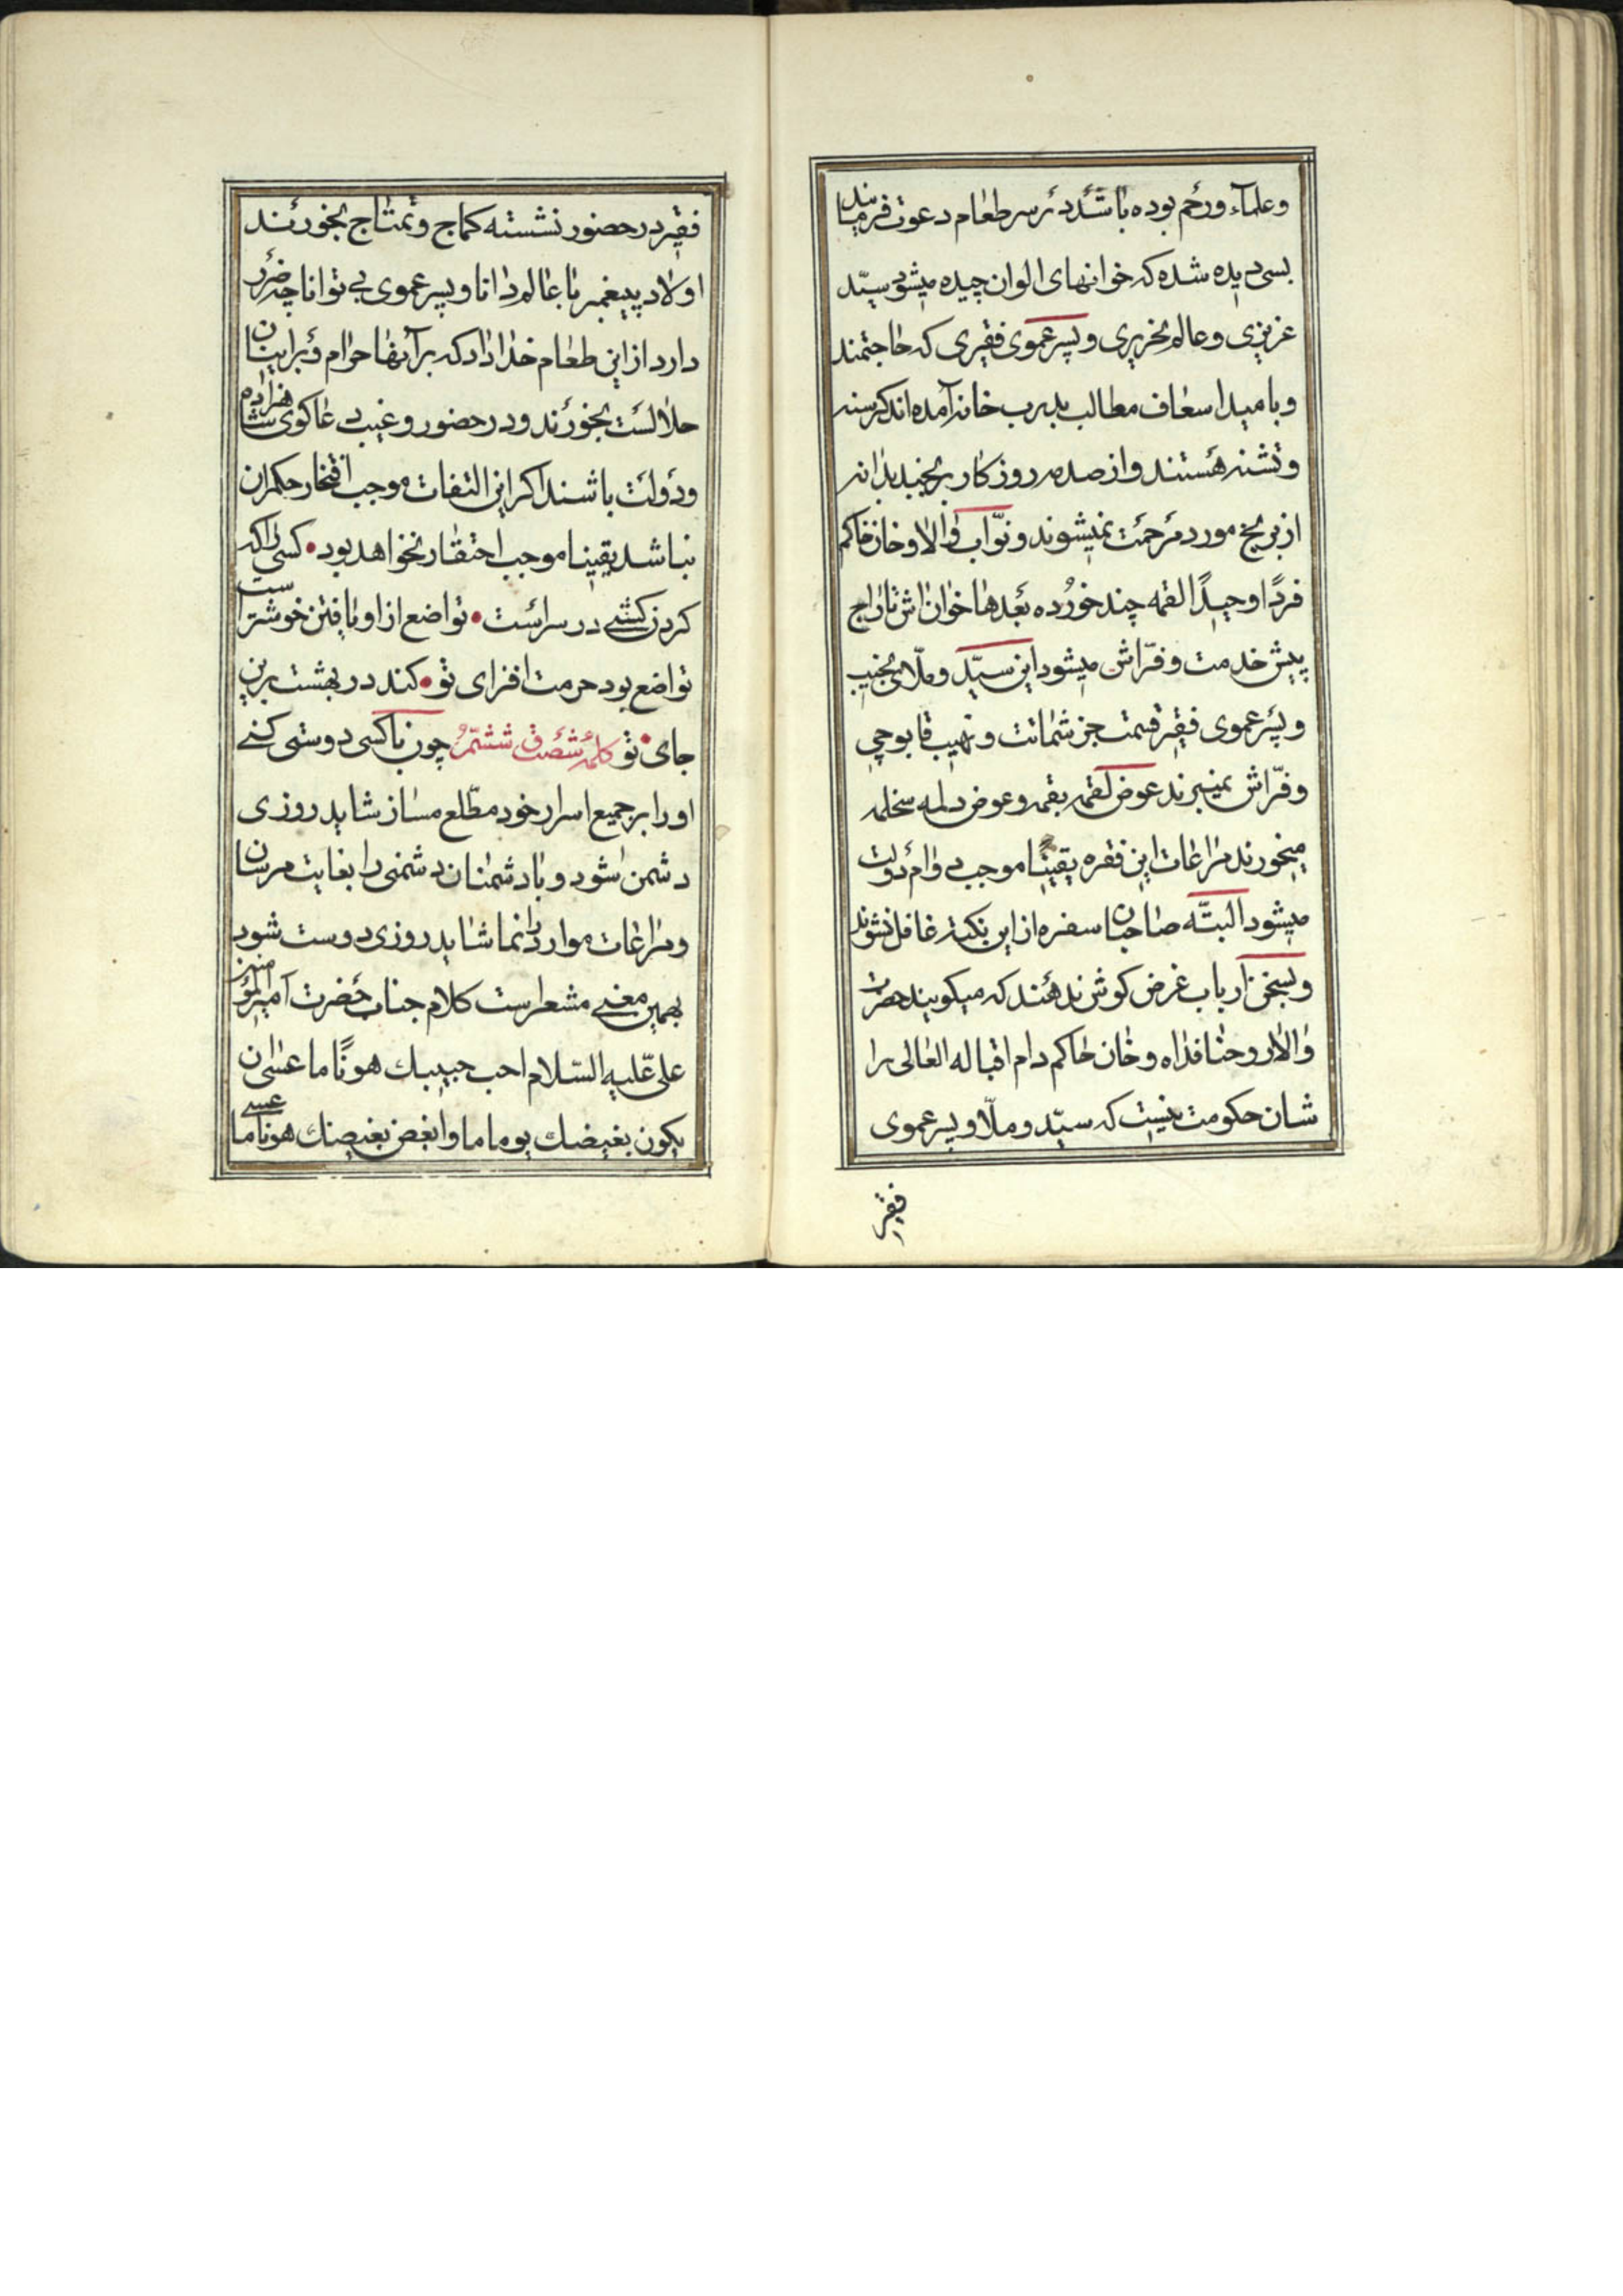 وعلمآء ورحم بوده باشند در سر طعام دعوت فرمایند
بسی دیده شده که خوانهای الوان چیده میشود سیّد
عزیزی و عالم نحریری و پسر عموی فقیری که حاجتمند
و بامید اسعاف مطالب بدرب خانه آمده اند کرسنه
و تشنه هستند و از صدمه روزکار
از مورد مرحمت نمیشوند و نوّاب والا و خان حاکم
فردًا وحیدًا لقمه چند خورده بعدها خوان اش تاراج
پیش خدمت و فرّاش میشود این سیّد و ملّای نجیب
و پسر عموی فقیر قسمت جز شماتت و نهیب قابوچی
و فرّاش نمیبرند عوض لقمه بقمه و عوض دلمه سخلمه
میخورند مراعات این فقره یقینًا موجب دوام دولت
میشود البتّه صاحبان سفره از این نکته غافل نشوند
و بسخن ارباب غرض کوش ندهند که میکویند حضرت
والا روحنا فداه و خان حاکم دام اقباله العالی را
شان حکومت نیست که سیّد و ملّا و پسر عموی
فقیر
فقیر در حضور نشسته کماج و تمتاج بخورند
اولاد پیغمبر با عالم دانا و پسر عموی بی توانا چه ضرر
دارد از این طعام خداداد که بر آنها حرام و بر اینان
حلالست بخورند و در حضور و غیب دعاکوی شاهزاده
و دولت باشند اکر این التفات موجب افتخار حکمران
نباشد یقینا موجب احتقار نخواهد بود • کسی را که
کردن کشی در سراست • تواضع از او یافتن خوشتر است
تواضع بود حرمت افزای تو • کند در بهشت برین
جای تو • کلمه شصت ششم چون با کسی دوستی کنی
او را بر جمیع اسرار خود مطّلع مساز شاید روزی
دشمن شود و با دشمنان دشمنی را بغایت مرسان
و مراعات موارد را نما شاید روزی دوست شود
بهمین معنی مشعر است کلام جناب حضرت امیر المؤمنین
علی علیه السّلام احبب حبیبک هونًا ما عسی ان
یکون بغیضک یوما ما وابغض بغیضک هونا ما عسی